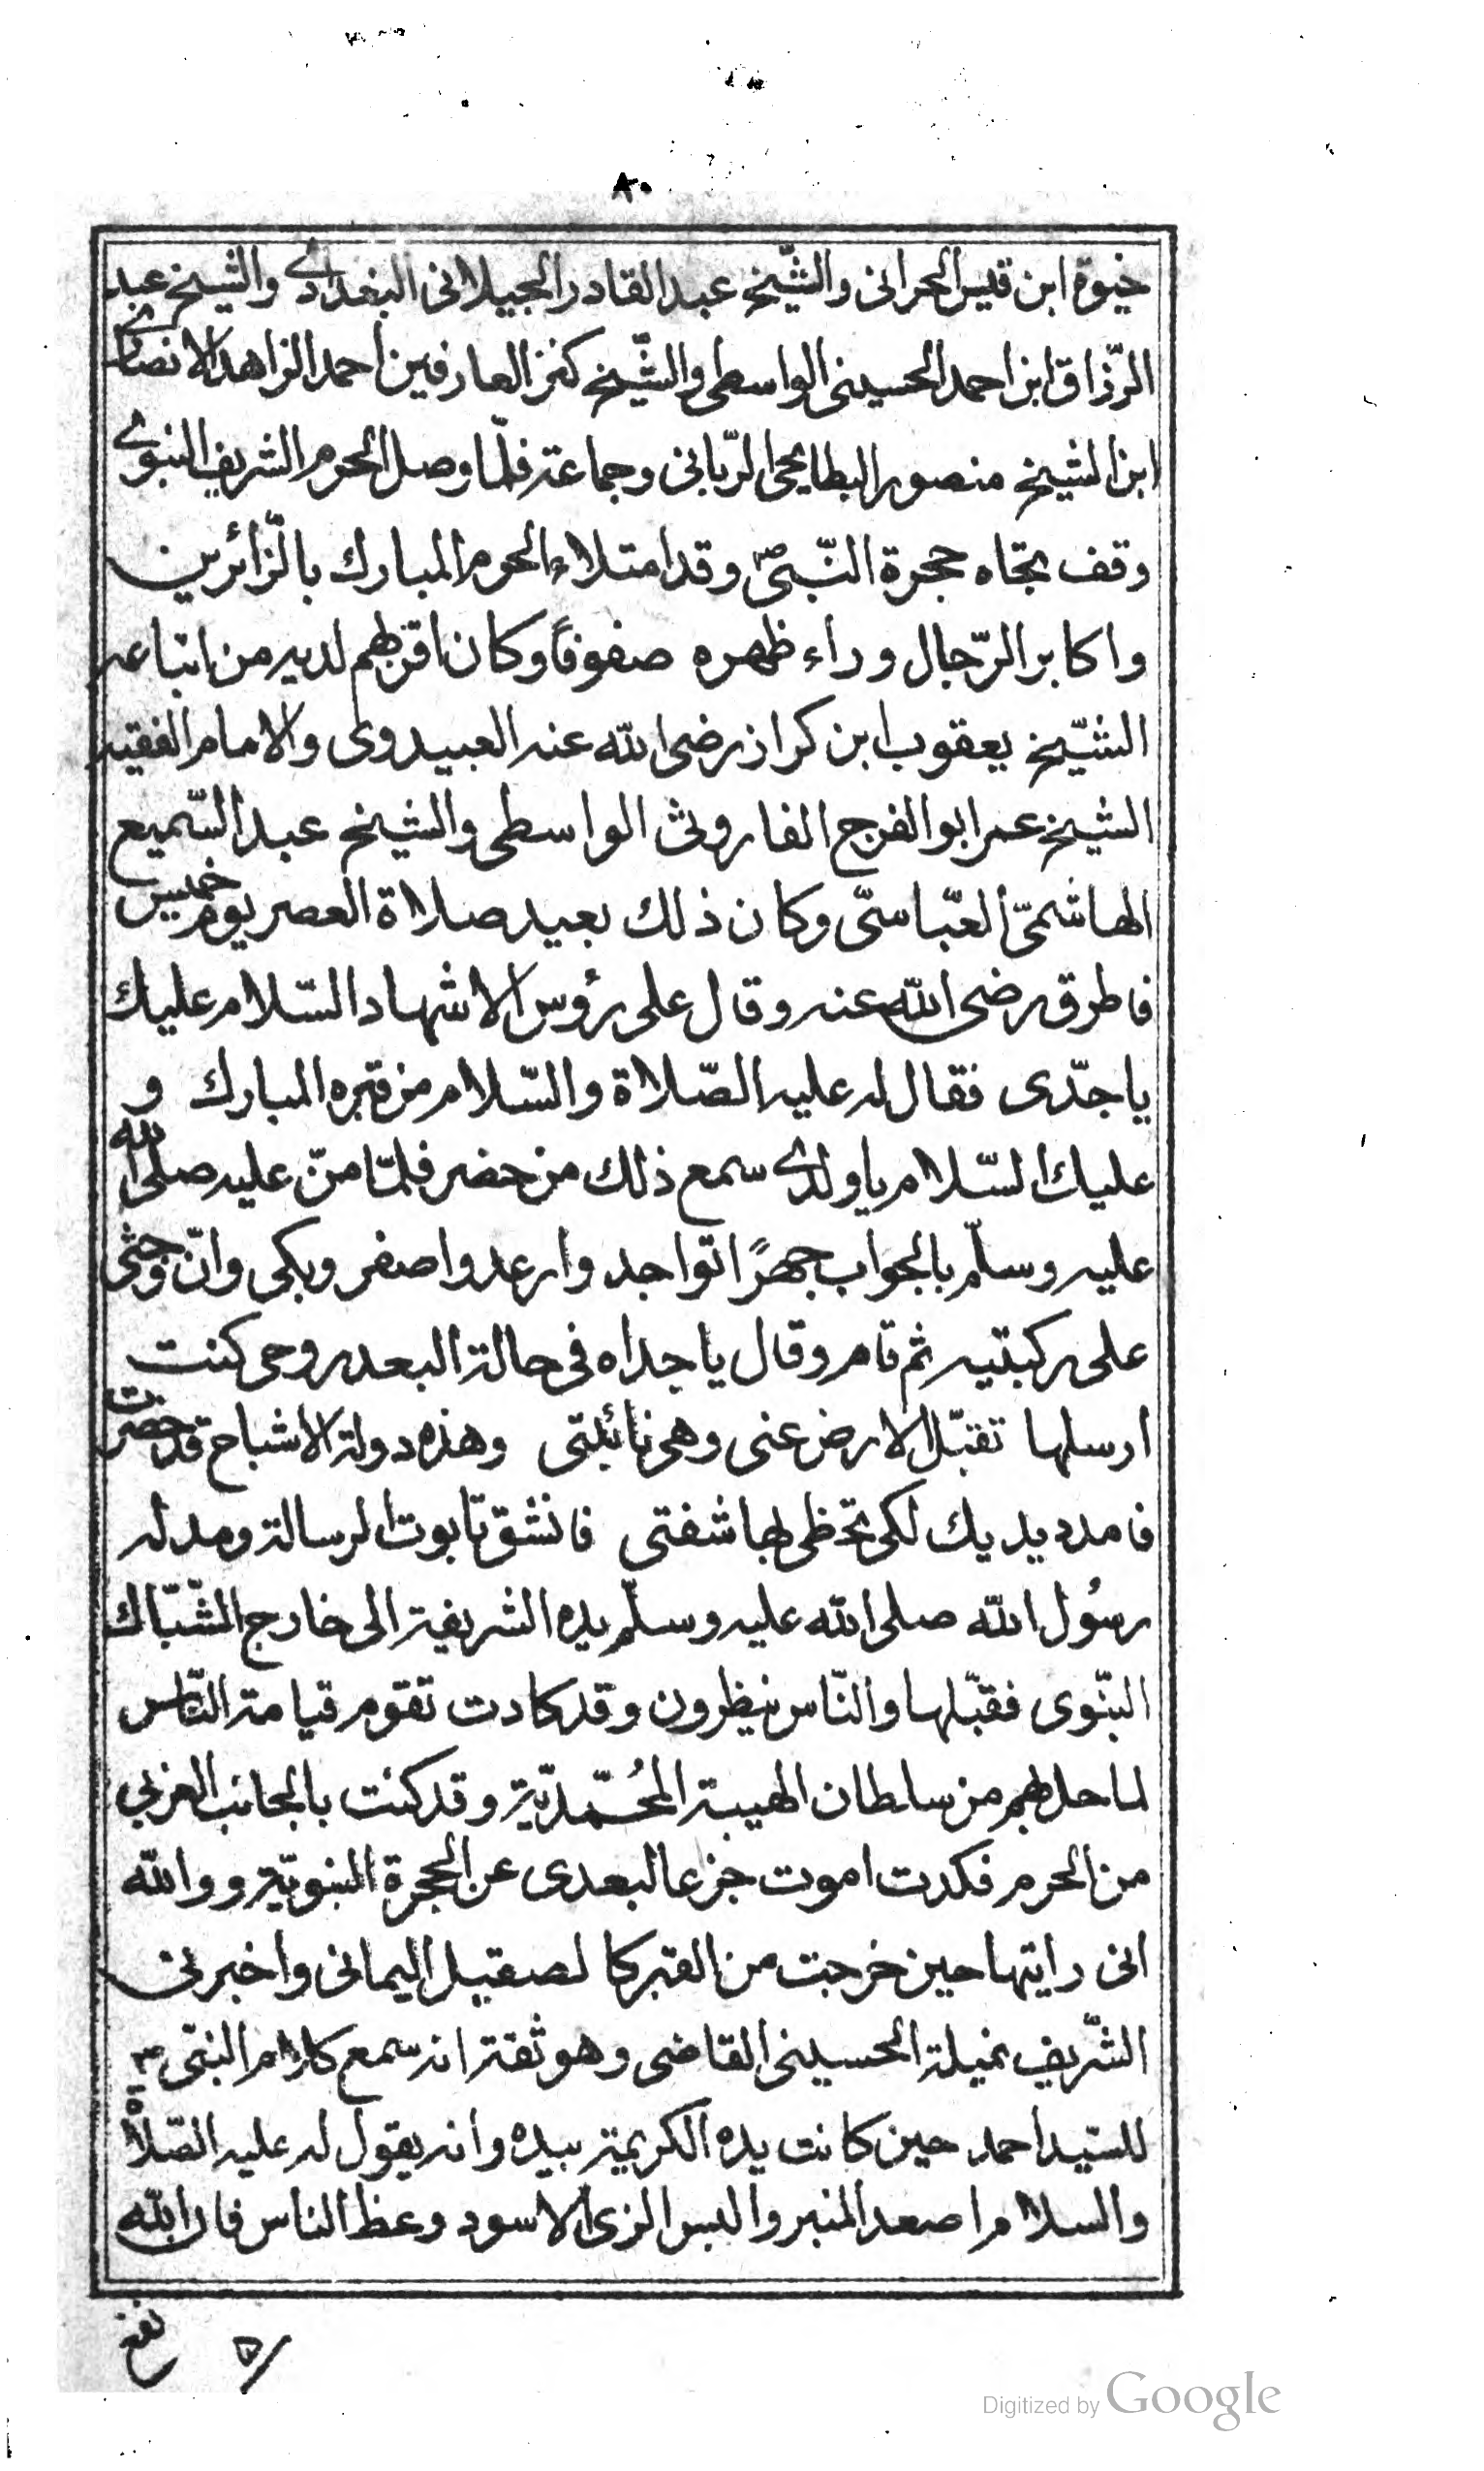 ٨٠
خيوة ابن قيس الحراني والشّيخ عبد القادر الجيلاني البغدادي والشيخ عبد
الرّزاق ابن احمد الحسيني الواسطى والشّيخ كنز العارفين احمد الزاهد الانصارى
ابن الشيخ منصور البطايحى الرّبانى وجماعة فلّما وصل الحرم الشريف النبوى
وقف تجاه حجرة النّبىّ ص وقد امتلاء الحرم المبارك بالّزائرين
واكابر الرّجال وراء ظهره صفوفاً وكان اقربهم لديه من اتباعه
الشّيخ يعقوب ابن كراز رضى الله عنه العبيدوى والامام الفقيه
الشيخ عمر ابو الفرج الفاروثى الواسطى والشيخ عبد السّميع
الهاشمىّ العبّاسىّ وكان ذلك بعيد صلاة العصر يوم خميس
فاطرق رضى الله عنه وقال على رؤس الاشهاد السّلام عليك
ياجدّى فقال له عليه الصّلاة والسّلام من قبره المبارك و
عليك السّلام ياولدى سمع ذلك من حضر فلمّا منّ عليه صلى الله
عليه وسلّم بالجواب جهرًا تواجد وارعد واصفر وبكى وانّ وجثى
على ركبتيه ثم قام وقال ياجداه فى حالة البعد روحى كنت
ارسلها تقبّل الارض عنى وهى نائبتى وهذه دولة الاشباح قد حضرت
فامدد يديك لكى تحظى بها شفتى فانشق تابوت الرسالة ومد له
رسُول الله صلى الله عليه وسلّم يده الشريفة الى خارج الشّبّاك
النبّوى فقبّلها والنّاس ينظرون وقد كادت تقوم قيامة النّاس
لما حل بهم من سلطان الهيبة المحُمّديّة وقد كنت بالجانب الغربي
من الحرم فكدت اموت جزعا لبعدى عن الحجرة النبويّة ووالله
انى رايتها حين خرجت من القبر كالصقيل اليمانى واخبرنى
الشّريف نميلة الحسينى القاضى وهو ثقة انه سمع كلام النبى ص
للسّيد احمد حين كانت يده الكريمة بيده وانه يقول له عليه الصّلاة
والسلام اصعد المنبر والبس الزى الاسود وعظ الناس فان الله
نفع
٥
Digitized by Google